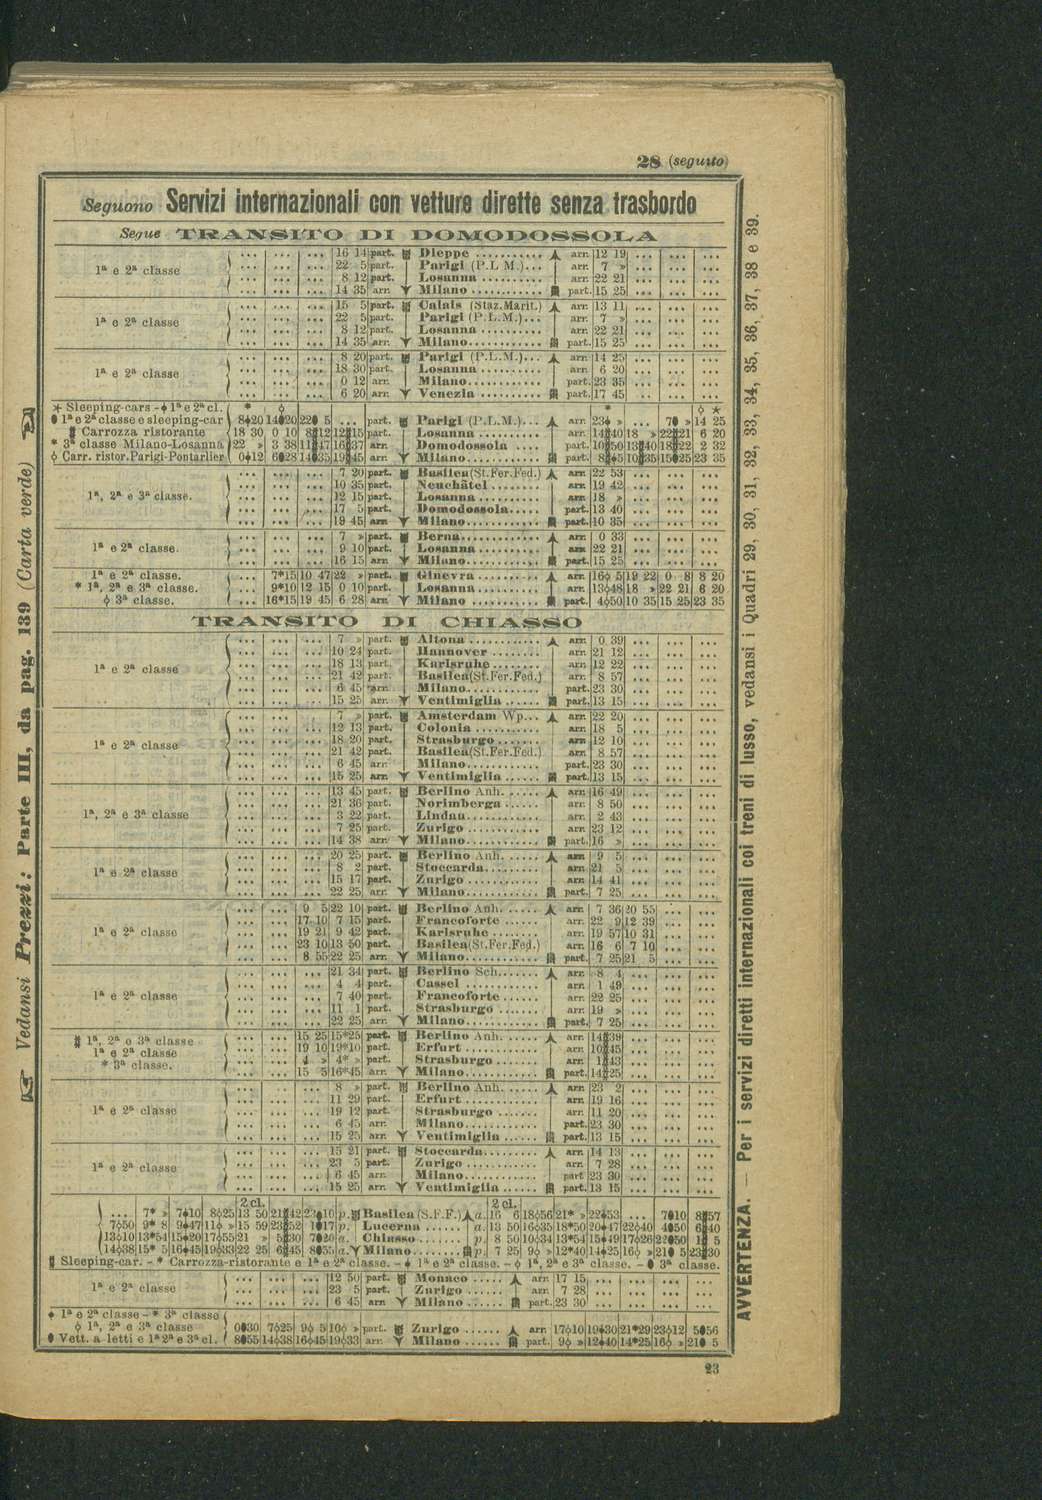 28 (seguito)
Seguono Servizi internazionali con vetture dirette senza trasbordo
Segue TRANSITO DI DOMODOSSOLA
1ª e 2ª classe
... ... ... 16 14 part. Dieppe ........... arr. 12 19 ... ... ...
... ... ... 22 5 part. Parigi (P.L M.)... arr. 7 » ... ... ...
... ... ... 8 12 part. Losanna .......... arr. 22 21 ... ... ...
... ... ... 14 35 arr. Milano ........... part. 15 25 ... ... ...
1ª e 2ª classe
... ... ... 15 5 part. Calais (Staz.Marit.) arr. 13 11 ... ... ...
... ... ... 22 5 part. Parigi (P.L.M.)... arr. 7 » ... ... ...
... ... ... 8 12 part. Losanna .......... arr. 22 21 ... ... ...
... ... ... 14 35 arr. Milano........... part. 15 25 ... ... ...
1ª e 2ª classe
... ... ... 8 20 part. Parigi (P.L.M.)... arr. 14 25 ... ... ...
... ... ... 18 30 part. Losanna .......... arr. 6 20 ... ... ...
... ... ... 0 12 arr. Milano........... part. 23 35 ... ... ...
... ... ... 6 20 arr. Venezia .......... part. 17 45 ... ... ...
Sleeping-cars - 1ª e 2ª cl.
1ª e 2ª classe e sleeping-car
Carrozza ristorante
* 3ª classe Milano-Losanna
Carr. ristor. Parigi-Pontarlier
8 20 14 20 22 5 ... part. Parigi (P.L.M.)... arr. 23 » ... ... 7 » 14 25
18 30 0 10 8 12 12 15 part. Losanna .......... arr. 14 40 18 » 22 21 6 20
22 » 3 38 11 47 16 37 arr. Domodossola .... part. 10 50 13 40 18 22 2 32
0 12 6 28 14 35 19 45 arr. Milano ........... part. 8 5 10 35 15 25 23 35
1ª, 2ª e 3ª classe.
... ... ... 7 20 part. Basilea (St.Fer.Fed.) arr. 22 53 ... ... ...
... ... ... 10 35 part. Neuchâtel ........ arr. 19 42 ... ... ...
... ... ... 12 15 part. Losanna .......... arr. 18 » ... ... ...
... ... ... 17 5 part. Domodossola..... part. 13 40 ... ... ...
... ... ... 19 45 arr. Milano........... part. 10 35 ... ... ...
1ª e 2ª classe.
... ... ... 7 » part. Berna............ arr. 0 33 ... ... ...
... ... ... 9 10 part. Losanna .......... arr. 22 21 ... ... ...
... ... ... 16 15 arr. Milano........... part. 15 25 ... ... ...
1ª e 2ª classe.
* 1ª, 2ª e 3ª classe.
3ª classe.
... 7*15 10 47 22 » part. Ginevra .......... arr. 16 5 19 22 0 8 8 20
... 9*10 12 15 0 10 part. Losanna .......... arr. 13 48 18 » 22 21 6 20
... 16*15 19 45 6 28 arr. Milano ........... part. 4 50 10 35 15 25 23 35
TRANSITO DI CHIASSO
1ª e 2ª classe
... ... ... 7 » part. Altona ........... arr. 0 39 ... ... ...
... ... ... 10 24 part. Hannover ......... arr. 21 12 ... ... ...
... ... ... 18 13 part. Karlsruhe......... arr. 12 22 ... ... ...
... ... ... 21 42 part. Basilea (St.Fer.Fed.) arr. 8 57 ... ... ...
... ... ... 6 45 arr. Milano........... part. 23 30 ... ... ...
... ... ... 15 25 arr. Ventimiglia ...... part. 13 15 ... ... ...
1ª e 2ª classe
... ... ... 7 » part. Amsterdam Wp... arr. 22 20 ... ... ...
... ... ... 12 13 part. Colonia ........... arr. 18 5 ... ... ...
... ... ... 18 20 part. Strasburgo ....... arr. 12 10 ... ... ...
... ... ... 21 42 part. Basilea (St.Fer.Fed.) arr. 8 57 ... ... ...
... ... ... 6 45 arr. Milano........... part. 23 30 ... ... ...
... ... ... 15 25 arr. Ventimiglia ...... part. 13 15 ... ... ...
1ª, 2ª e 3ª classe
... ... ... 13 45 part. Berlino Anh. ..... arr. 16 49 ... ... ...
... ... ... 21 36 part. Norimberga ...... arr. 8 50 ... ... ...
... ... ... 3 22 part. Lindau ........... arr. 2 43 ... ... ...
... ... ... 7 25 part. Zurigo ........... arr. 23 12 ... ... ...
... ... ... 14 38 arr. Milano........... part. 16 » ... ... ...
1ª e 2ª classe
... ... ... 20 25 part. Berlino Anh. ..... arr. 9 5 ... ... ...
... ... ... 8 2 part. Stoccarda......... arr. 21 5 ... ... ...
... ... ... 15 17 part. Zurigo ........... arr. 14 41 ... ... ...
... ... ... 22 25 arr. Milano........... part. 7 25 ... ... ...
1ª e 2ª classe
... ... 9 5 22 10 part. Berlino Anh. ..... arr. 7 36 20 55 ... ...
... ... 17 10 7 15 part. Francoforte ...... arr. 22 9 12 39 ... ...
... ... 19 21 9 42 part. Karlsruhe ........ arr. 19 57 10 31 ... ...
... ... 23 10 13 50 part. Basilea (St.Fer.Fed.) arr. 16 6 7 10 ... ...
... ... 8 55 22 25 arr. Milano........... part. 7 25 21 5 ... ...
1ª e 2ª classe
... ... ... 21 34 part. Berlino Sch...... arr. 8 4 ... ... ...
... ... ... 4 4 part. Cassel ........... arr. 1 49 ... ... ...
... ... ... 7 40 part. Francoforte ...... arr. 22 25 ... ... ...
... ... ... 11 1 part. Strasburgo ....... arr. 19 » ... ... ...
... ... ... 22 25 arr. Milano........... part. 7 25 ... ... ...
1ª, 2ª e 3ª classe
1ª e 2ª classe
* 3ª classe.
... ... 15 25 15*25 part. Berlino Anh. ..... arr. 14 39 ... ... ...
... ... 19 10 19*10 part. Erfurt ........... arr. 10 45 ... ... ...
... ... 4 » 4* » part. Strasburgo ....... arr. 1 43 ... ... ...
... ... 15 5 16*45 arr. Milano........... part. 14 25 ... ... ...
1ª e 2ª classe
... ... ... 8 » part. Berlino Anh. ..... arr. 23 2 ... ... ...
... ... ... 11 29 part. Erfurt ........... arr. 19 16 ... ... ...
... ... ... 19 12 part. Strasburgo ....... arr. 11 20 ... ... ...
... ... ... 6 45 arr. Milano........... part. 23 30 ... ... ...
... ... ... 15 25 arr. Ventimiglia ...... part. 13 15 ... ... ...
1ª e 2ª classe
... ... ... 15 21 part. Stoccarda......... arr. 14 13 ... ... ...
... ... ... 23 5 part. Zurigo ........... arr. 7 28 ... ... ...
... ... ... 6 45 arr. Milano........... part 23 30 ... ... ...
... ... ... 15 25 arr. Ventimiglia ...... part. 13 15 ... ... ...
2 cl. 2 cl.
... 7* » 7 10 8 25 13 50 21 42 23 10 p. Basilea (S.F.F.) a. 16 6 18 56 21* » 22 53 ... 7 10 8 57
7 50 9* 8 9 47 11 » 15 59 23 52 1 17 p. Lucerna ...... a. 13 50 16 35 18*50 20 47 22 40 4 50 6 40
13 10 13*54 15 20 17 55 21 » 5 30 7 20 a. Chiasso ...... p. 8 50 10 34 13*54 15 49 17 26 22 50 1 5
14 38 15* 5 16 45 19 33 22 25 6 45 8 55 a. Milano........ p. 7 25 9 » 12*40 14 25 16 » 21 5 23 30
Sleeping-car. - * Carrozza-ristorante e 1ª e 2ª classe. - 1ª e 2ª classe. - 1ª, 2ª e 3ª classe. - 3ª classe.
1ª e 2ª classe
... ... ... 12 50 part. Monaco ...... arr. 17 15 ... ... ...
... ... ... 23 5 part. Zurigo ....... arr. 7 28 ... ... ...
... ... ... 6 45 arr. Milano ....... part. 23 30 ... ... ...
1ª e 2ª classe - * 3ª classe
1ª, 2ª e 3ª classe
Vett. a letti e 1ª 2ª e 3ª cl.
0 30 7 25 9 5 10 » part. Zurigo ...... arr. 17 10 19 30 21*29 23 12 5 56
8 55 14 38 16 45 19 33 arr. Milano ...... part. 9 » 12 40 14*25 16 » 21 5
23
Vedansi Prezzi: Parte III, da pag. 139 (Carta verde)
AVVERTENZA. — Per i servizi diretti internazionali coi treni di lusso, vedansi i Quadri 29, 30, 31, 32, 33, 34, 35, 36, 37, 38 e 39.